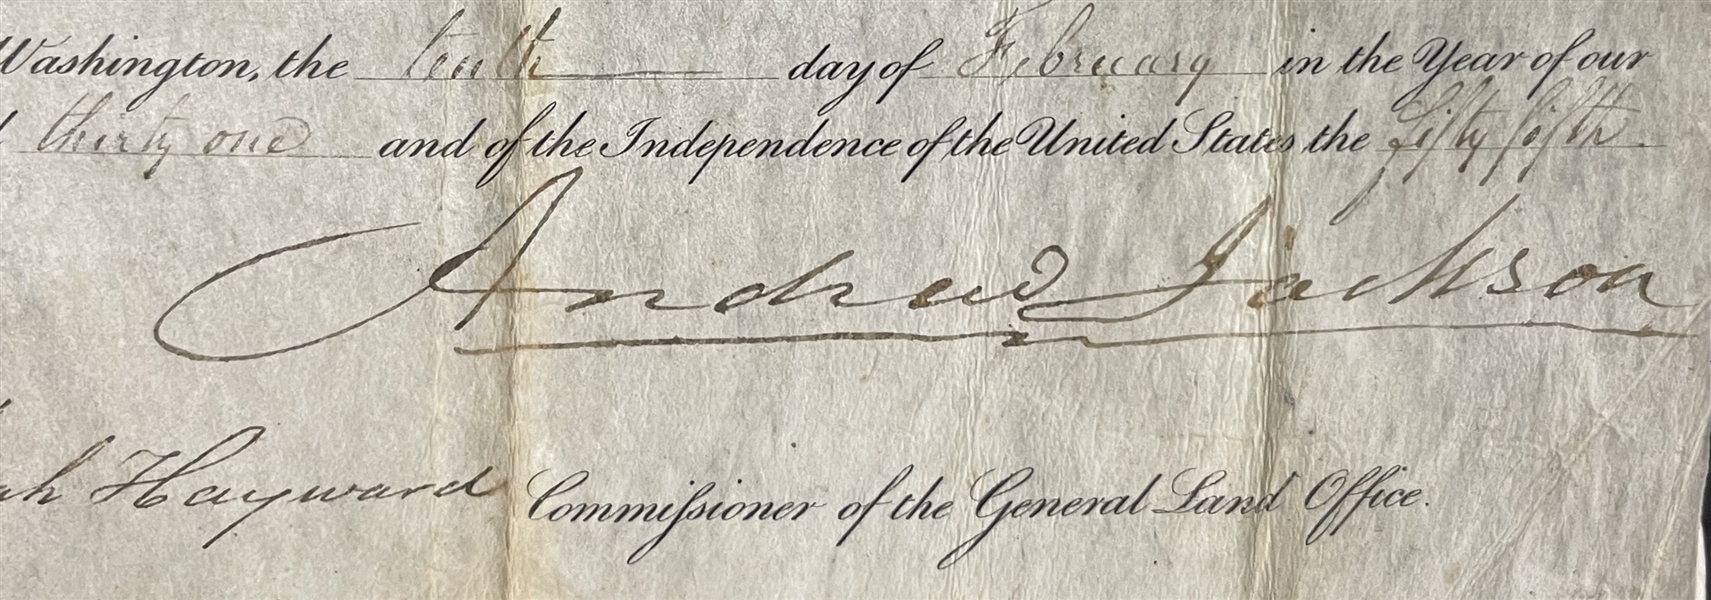 Washington, the tenth day of February in the Year of our
thirty one and of the Independence of the United States the fifty fifth
Andrew Jackson
Hayward Commissioner of the General Land Office.